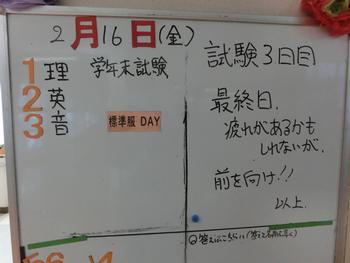 2月16日(金)
1 理 学年末試験
2 英
3 音 標準服 DAY
試験3日目
最終日.
疲れがあるかも
しれないが、
前を向け!!
以上.